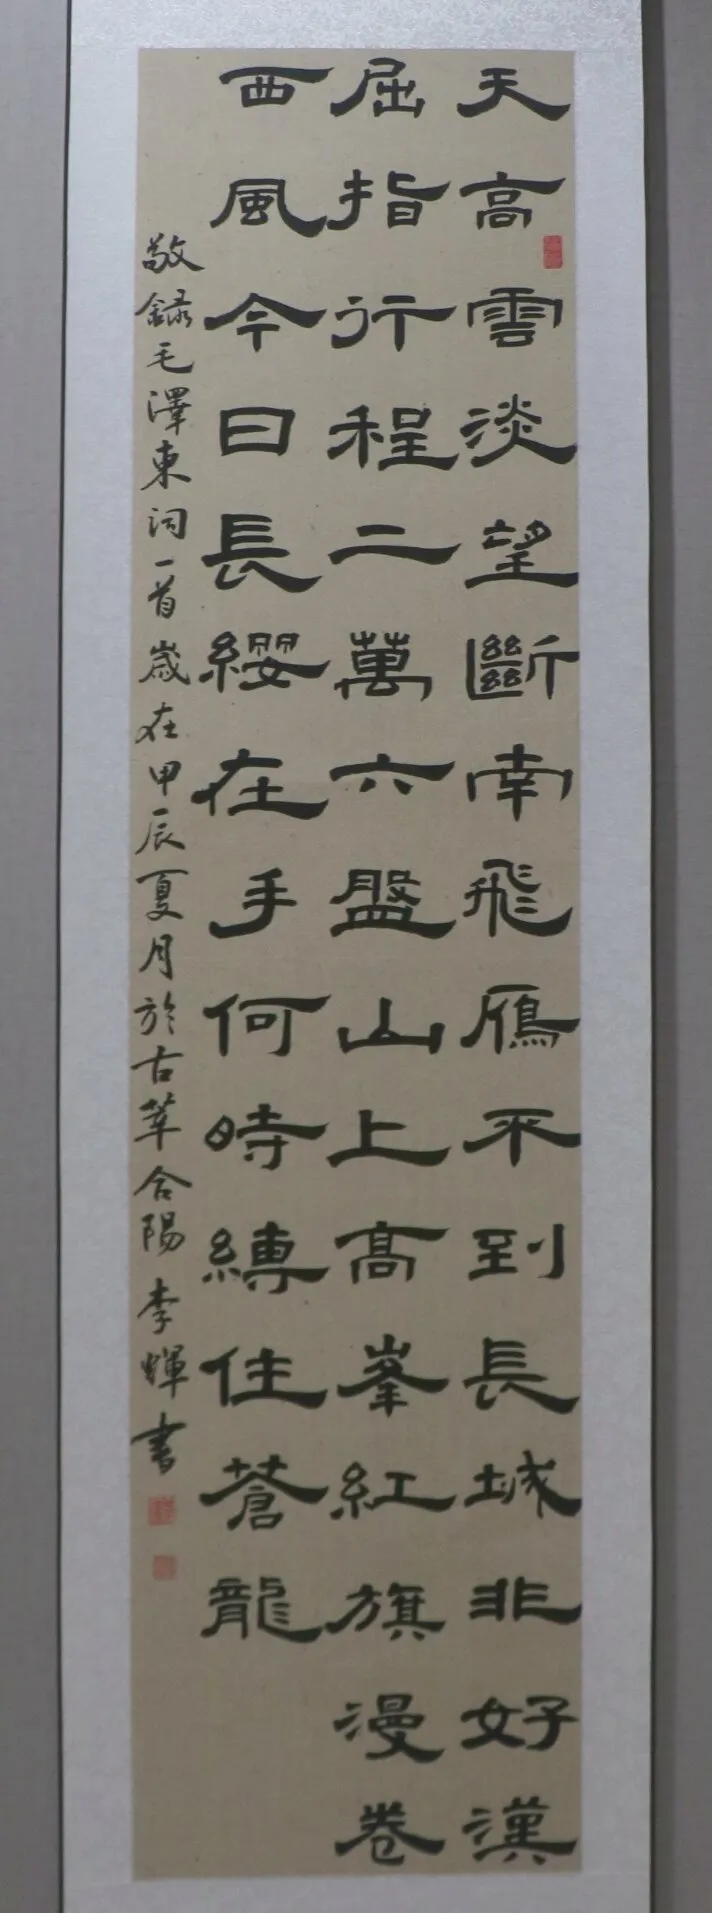 天高雲淡望斷南飛雁不到長城非好漢
屈指行程二萬六盤山上高峯紅旗漫卷
西風今日長纓在手何時縛住蒼龍
敬録毛澤東詞一首歲在甲辰夏月於古莘合陽李輝書